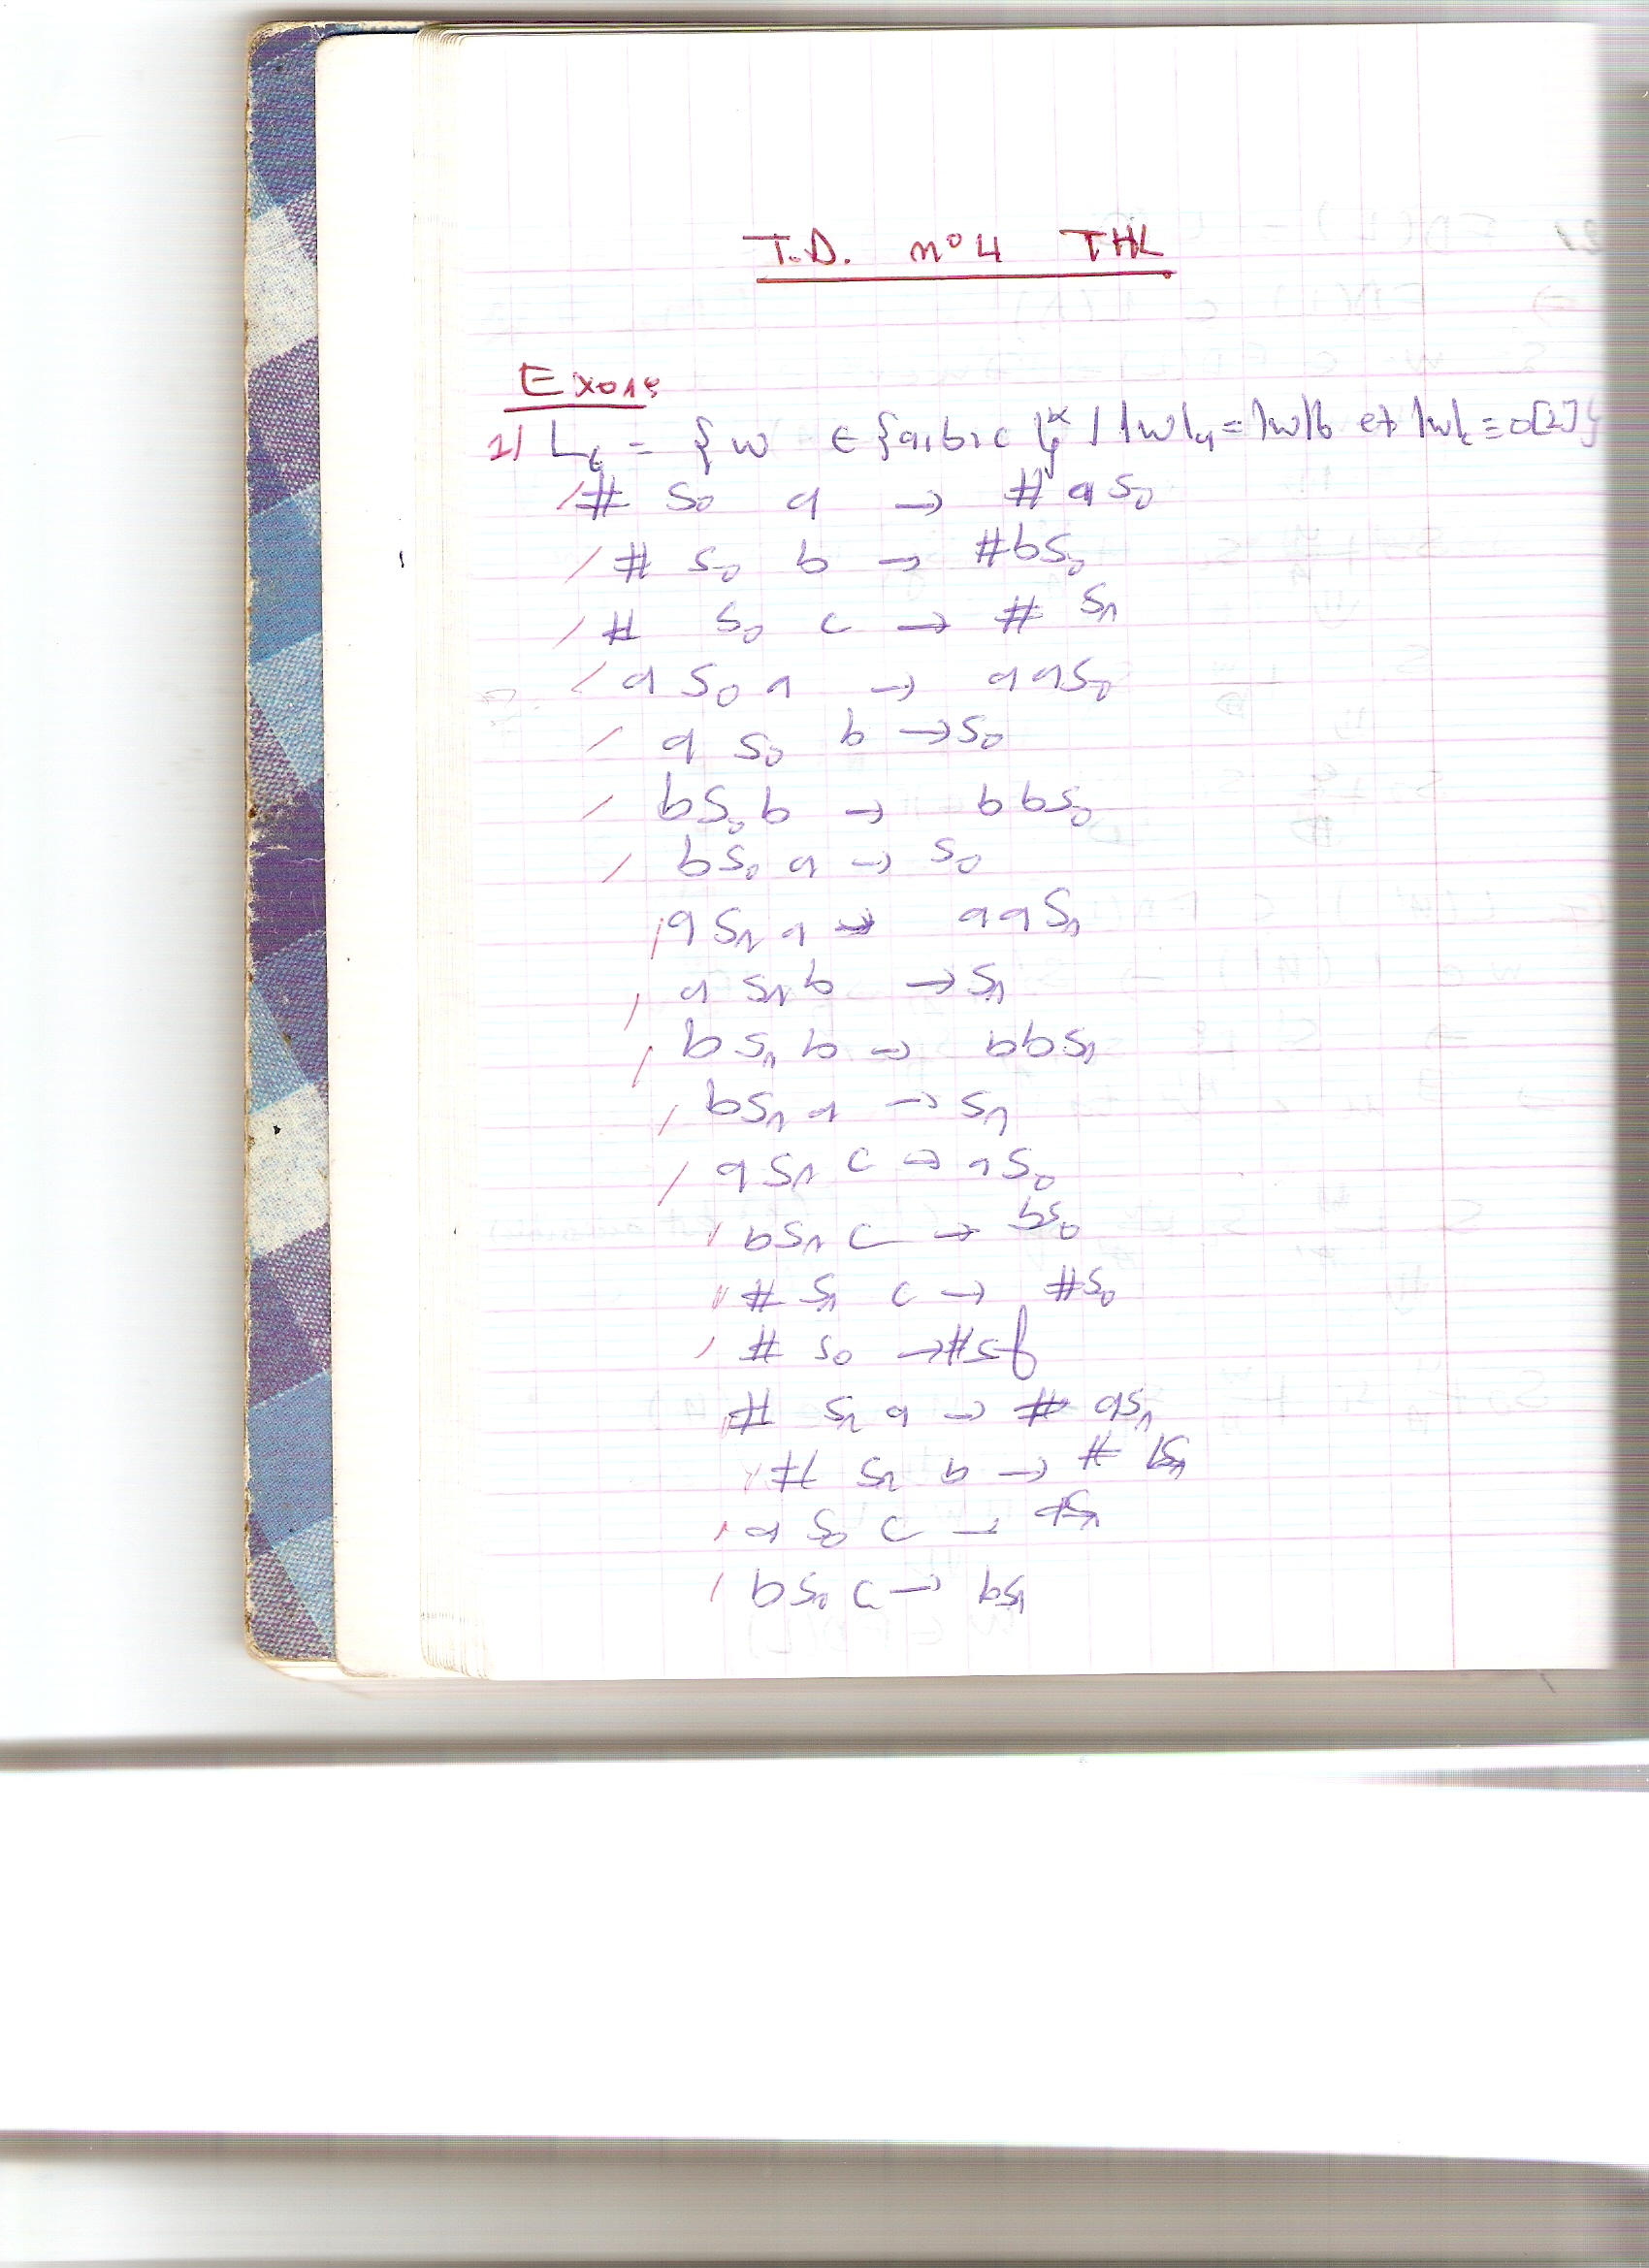 T.D. n° 4 THL
Exo1:
1/ L6 = { w ∈ {a,b,c}* / |w|a = |w|b et |w|c ≡ 0[2] }
/ # S0 a → # a S0
/ # S0 b → # b S0
/ # S0 c → # S1
/ a S0 a → a a S0
/ a S0 b → S0
/ b S0 b → b b S0
/ b S0 a → S0
/ a S1 a → a a S1
/ a S1 b → S1
/ b S1 b → b b S1
/ b S1 a → S1
/ a S1 c → a S0
/ b S1 c → b S0
/ # S1 c → # S0
/ # S0 → # Sf
/ # S1 a → # a S1
/ # S1 b → # b S1
/ a S0 c → a S1
/ b S0 c → b S1